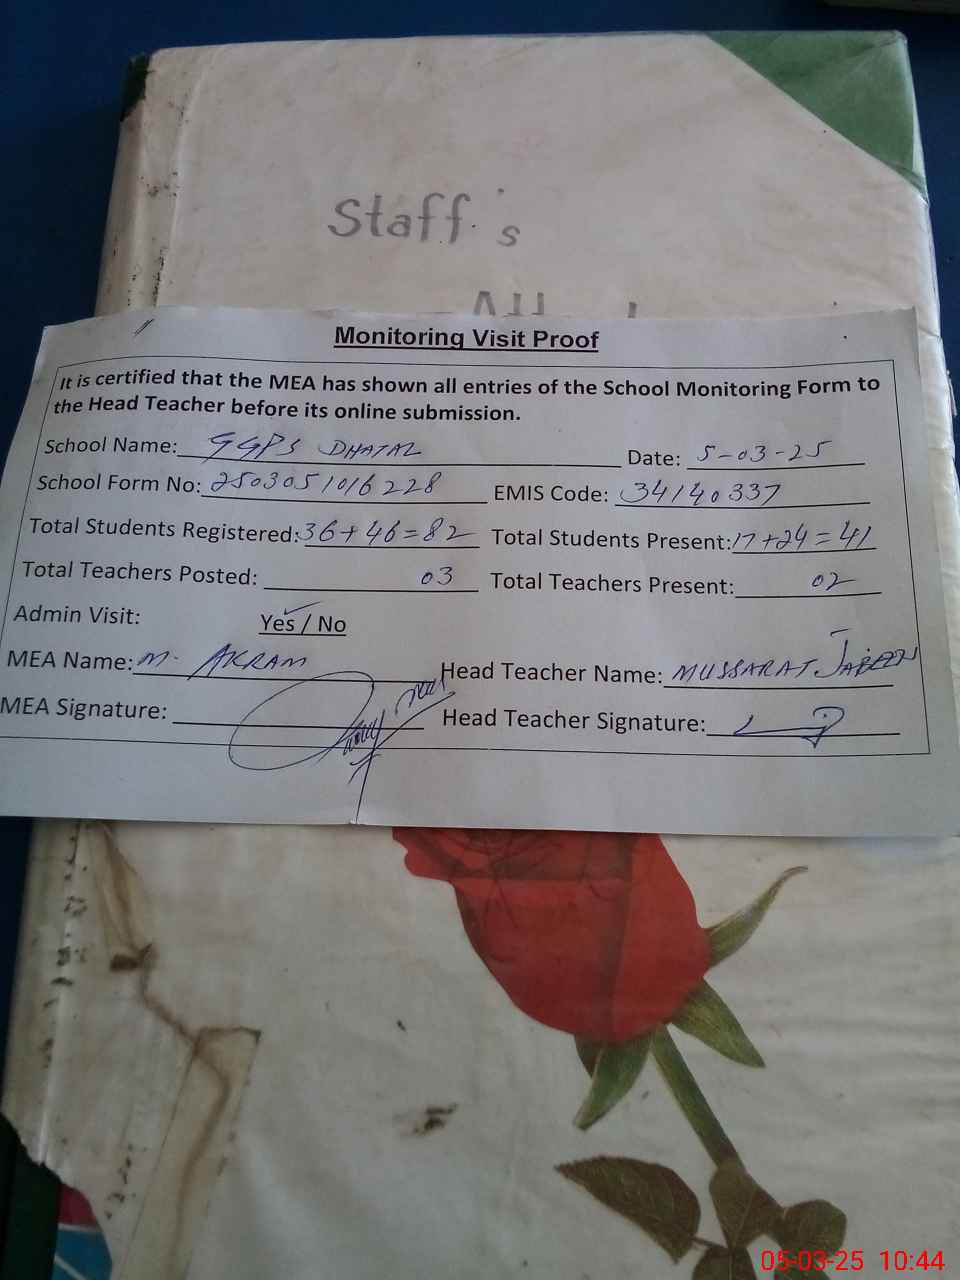 Staff's
Monitoring Visit Proof
It is certified that the MEA has shown all entries of the School Monitoring Form to
the Head Teacher before its online submission.
School Name: GGPS DHATAL Date: 5-03-25
School Form No: 2503051016228 EMIS Code: 34140337
Total Students Registered: 36+46=82 Total Students Present: 17+24=41
Total Teachers Posted: 03 Total Teachers Present: 02
Admin Visit: Yes / No
MEA Name: M. AKRAM Head Teacher Name: MUSSARAT JABEEN
MEA Signature: Head Teacher Signature:
05-03-25 10:44